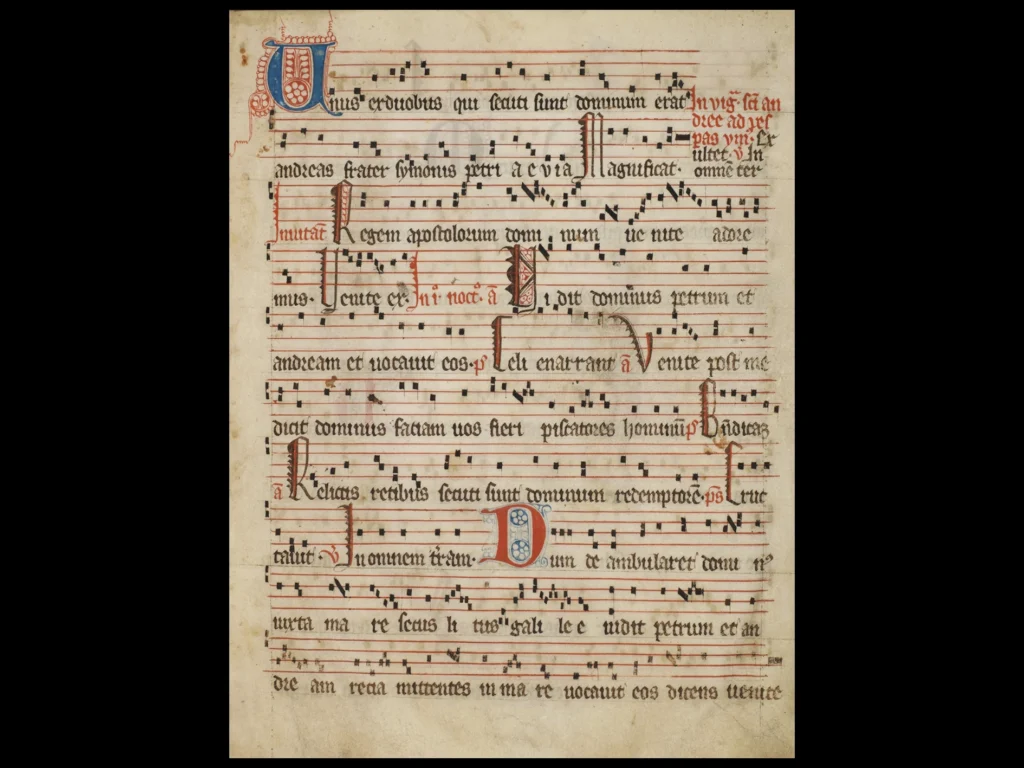 Unus exduobus qui secuti sunt dominum erat In vigˉ scī an
dree ad ves
pas ym̄. Ex
ultet. v̄ In
andreas frater symonis petri a e v i a Magnificat. omnē ter
Inuitat̄ Regem apostolorum domi num ue nite adore
mus. Venite ex. In i. noct̊. ā Uidit dominus petrum et
andream et uocauit eos. ps Celi enarrant ā Venite post me
dicit dominus faciam uos fieri piscatores hominum ps Bn̄dicaz
ā Relictis retibus secuti sunt dominum redemptorē. ps Eruc
tauit. v̄ In omnem tr̄am. Dum de ambularet domi n9
iuxta ma re secus li tus gali le e uidit petrum et an
dre am recia mittentes in ma re uocauit eos dicens uenite